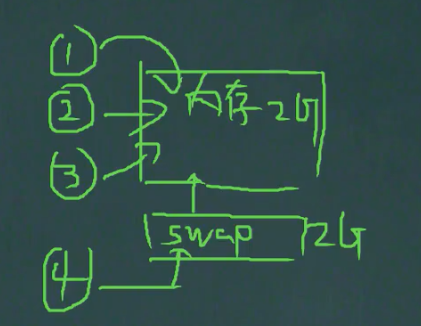 ①
② 内存 2G
③
swap 2G
④